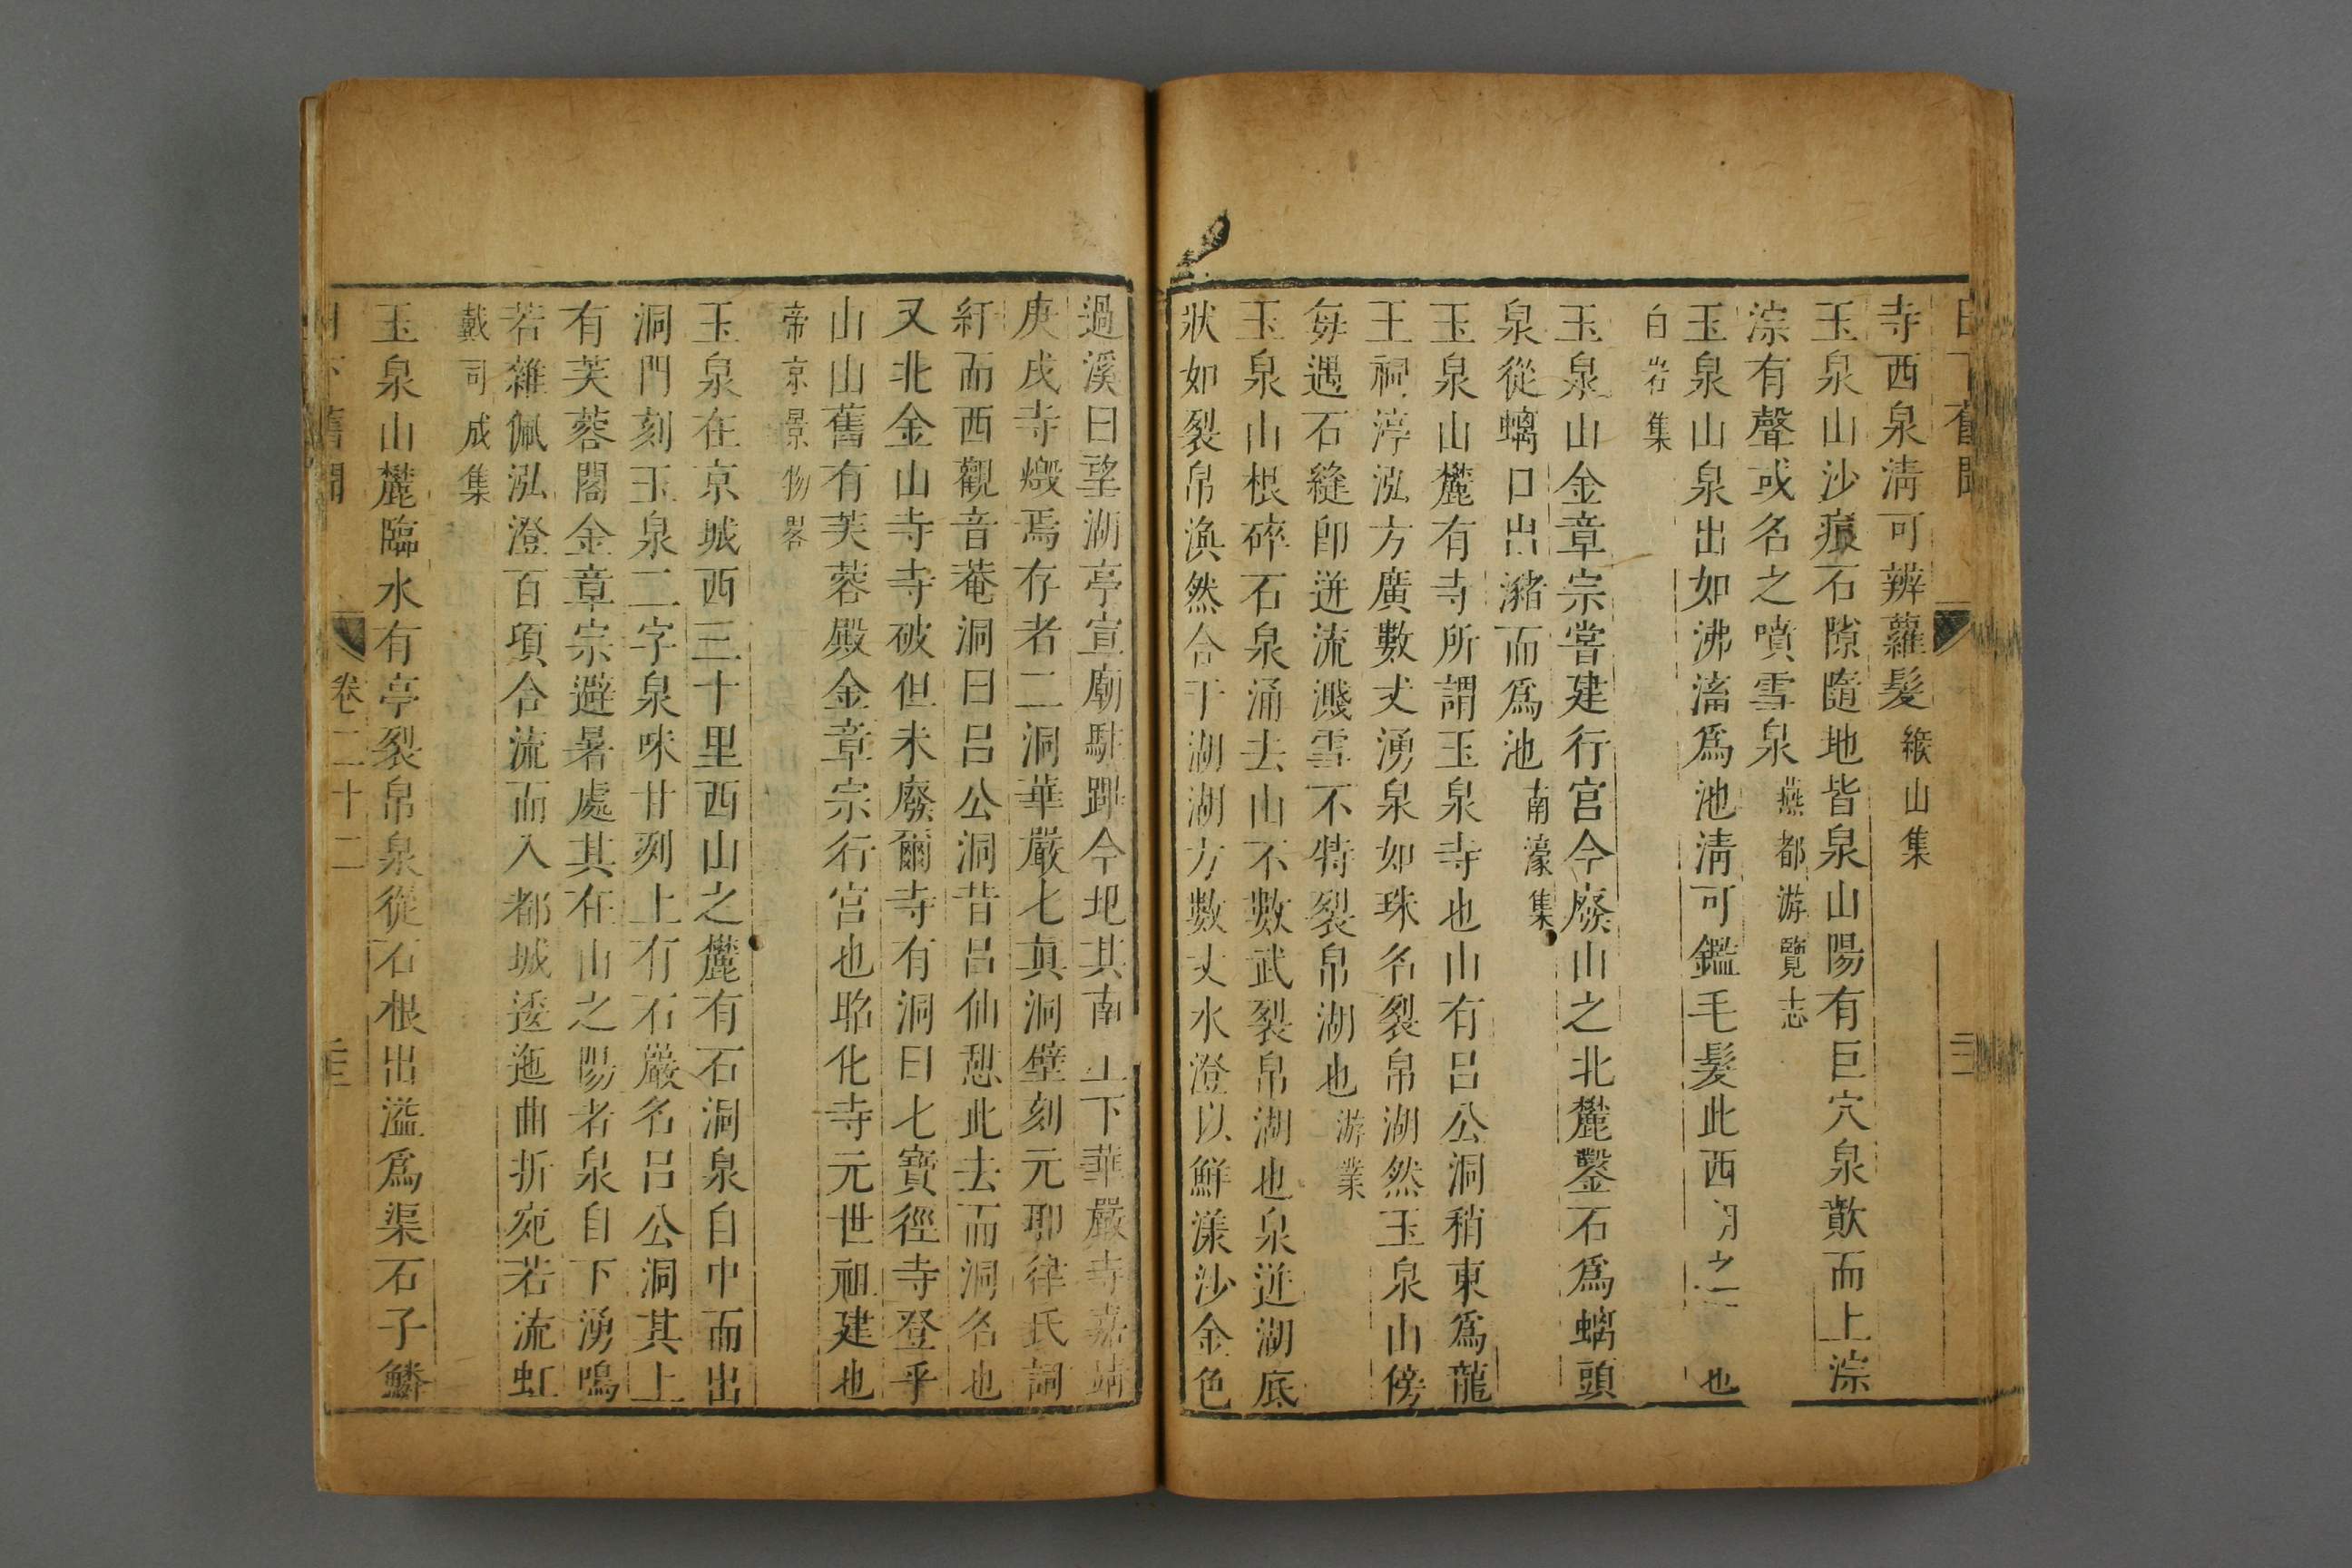 日下舊聞
寺西泉淸可辨蘿髮緱山集
玉泉山沙痕石隙隨地皆泉山陽有巨穴泉歕而上淙
淙有聲或名之噴雪泉燕都游覽志
玉泉山泉出如沸滀爲池淸可鑑毛髮此西湖之 也
白岩集
玉泉山金章宗嘗建行宮今廢山之北麓鑿石爲螭頭
泉從螭口出瀦而爲池南濠集
玉泉山麓有寺所謂玉泉寺也山有呂公洞稍東爲龍
王祠渟泓方廣數丈湧泉如珠名裂帛湖然玉泉山傍
每遇石縫卽迸流濺雪不特裂帛湖也游業
玉泉山根碎石泉涌去山不數武裂帛湖也泉迸湖底
狀如裂帛渙然合于湖湖方數丈水澄以鮮漾沙金色
過溪曰望湖亭宣廟駐蹕今圯其南上下華嚴寺嘉靖
庚戌寺燬焉存者二洞華嚴七真洞壁刻元耶律氏詞
紅而西觀音菴洞曰呂公洞昔呂仙憩此去而洞名也
又北金山寺寺破但未廢爾寺有洞曰七寶徑寺登乎
山山舊有芙蓉殿金章宗行宮也昭化寺元世祖建也
帝京景物畧
玉泉在京城西三十里西山之麓有石洞泉自中而出
洞門刻玉泉二字泉味甘冽上有石巖名呂公洞其上
有芙蓉閣金章宗避暑處其在山之陽者泉自下湧鳴
若雜佩泓澄百頃合流而入都城逶迤曲折宛若流虹
戴司成集
玉泉山麓臨水有亭裂帛泉從石根出溢爲渠石子鱗
日下舊聞 卷二十二